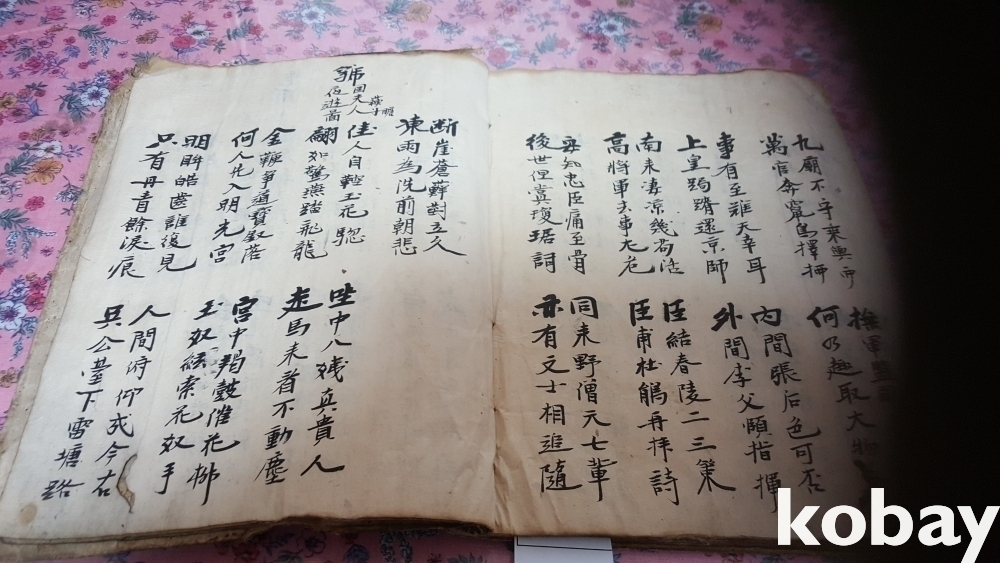 九廟不守乘輿西
萬官奔竄鳥擇栖
撫軍監
何乃趣取大物
事有至難天幸耳
上皇跼蹐還京師
內間張后色可否
外間李父頤指揮
南來凄凉幾苟活
高將軍去事尤危
臣結春陵二三策
臣甫杜鵑再拜詩
安知忠臣痛至骨
後世但賞瓊琚詞
同來野僧六七輩
亦有文士相追隨
断崖蒼蘚對立久
凍雨為洗前朝悲
虢国夫人夜遊啚
佳人自鞚玉花驄
翩如驚燕踏飛龍
金鞭爭道寶釵落
何人先入明光宮
宮中羯鼓催花柳
玉奴絃索花奴手
坐中八姨真貴人
走馬来看不動塵
明眸皓齒誰復見
只有丹青餘淚痕
人間俯仰成今古
吳公臺下雷塘路
kobay